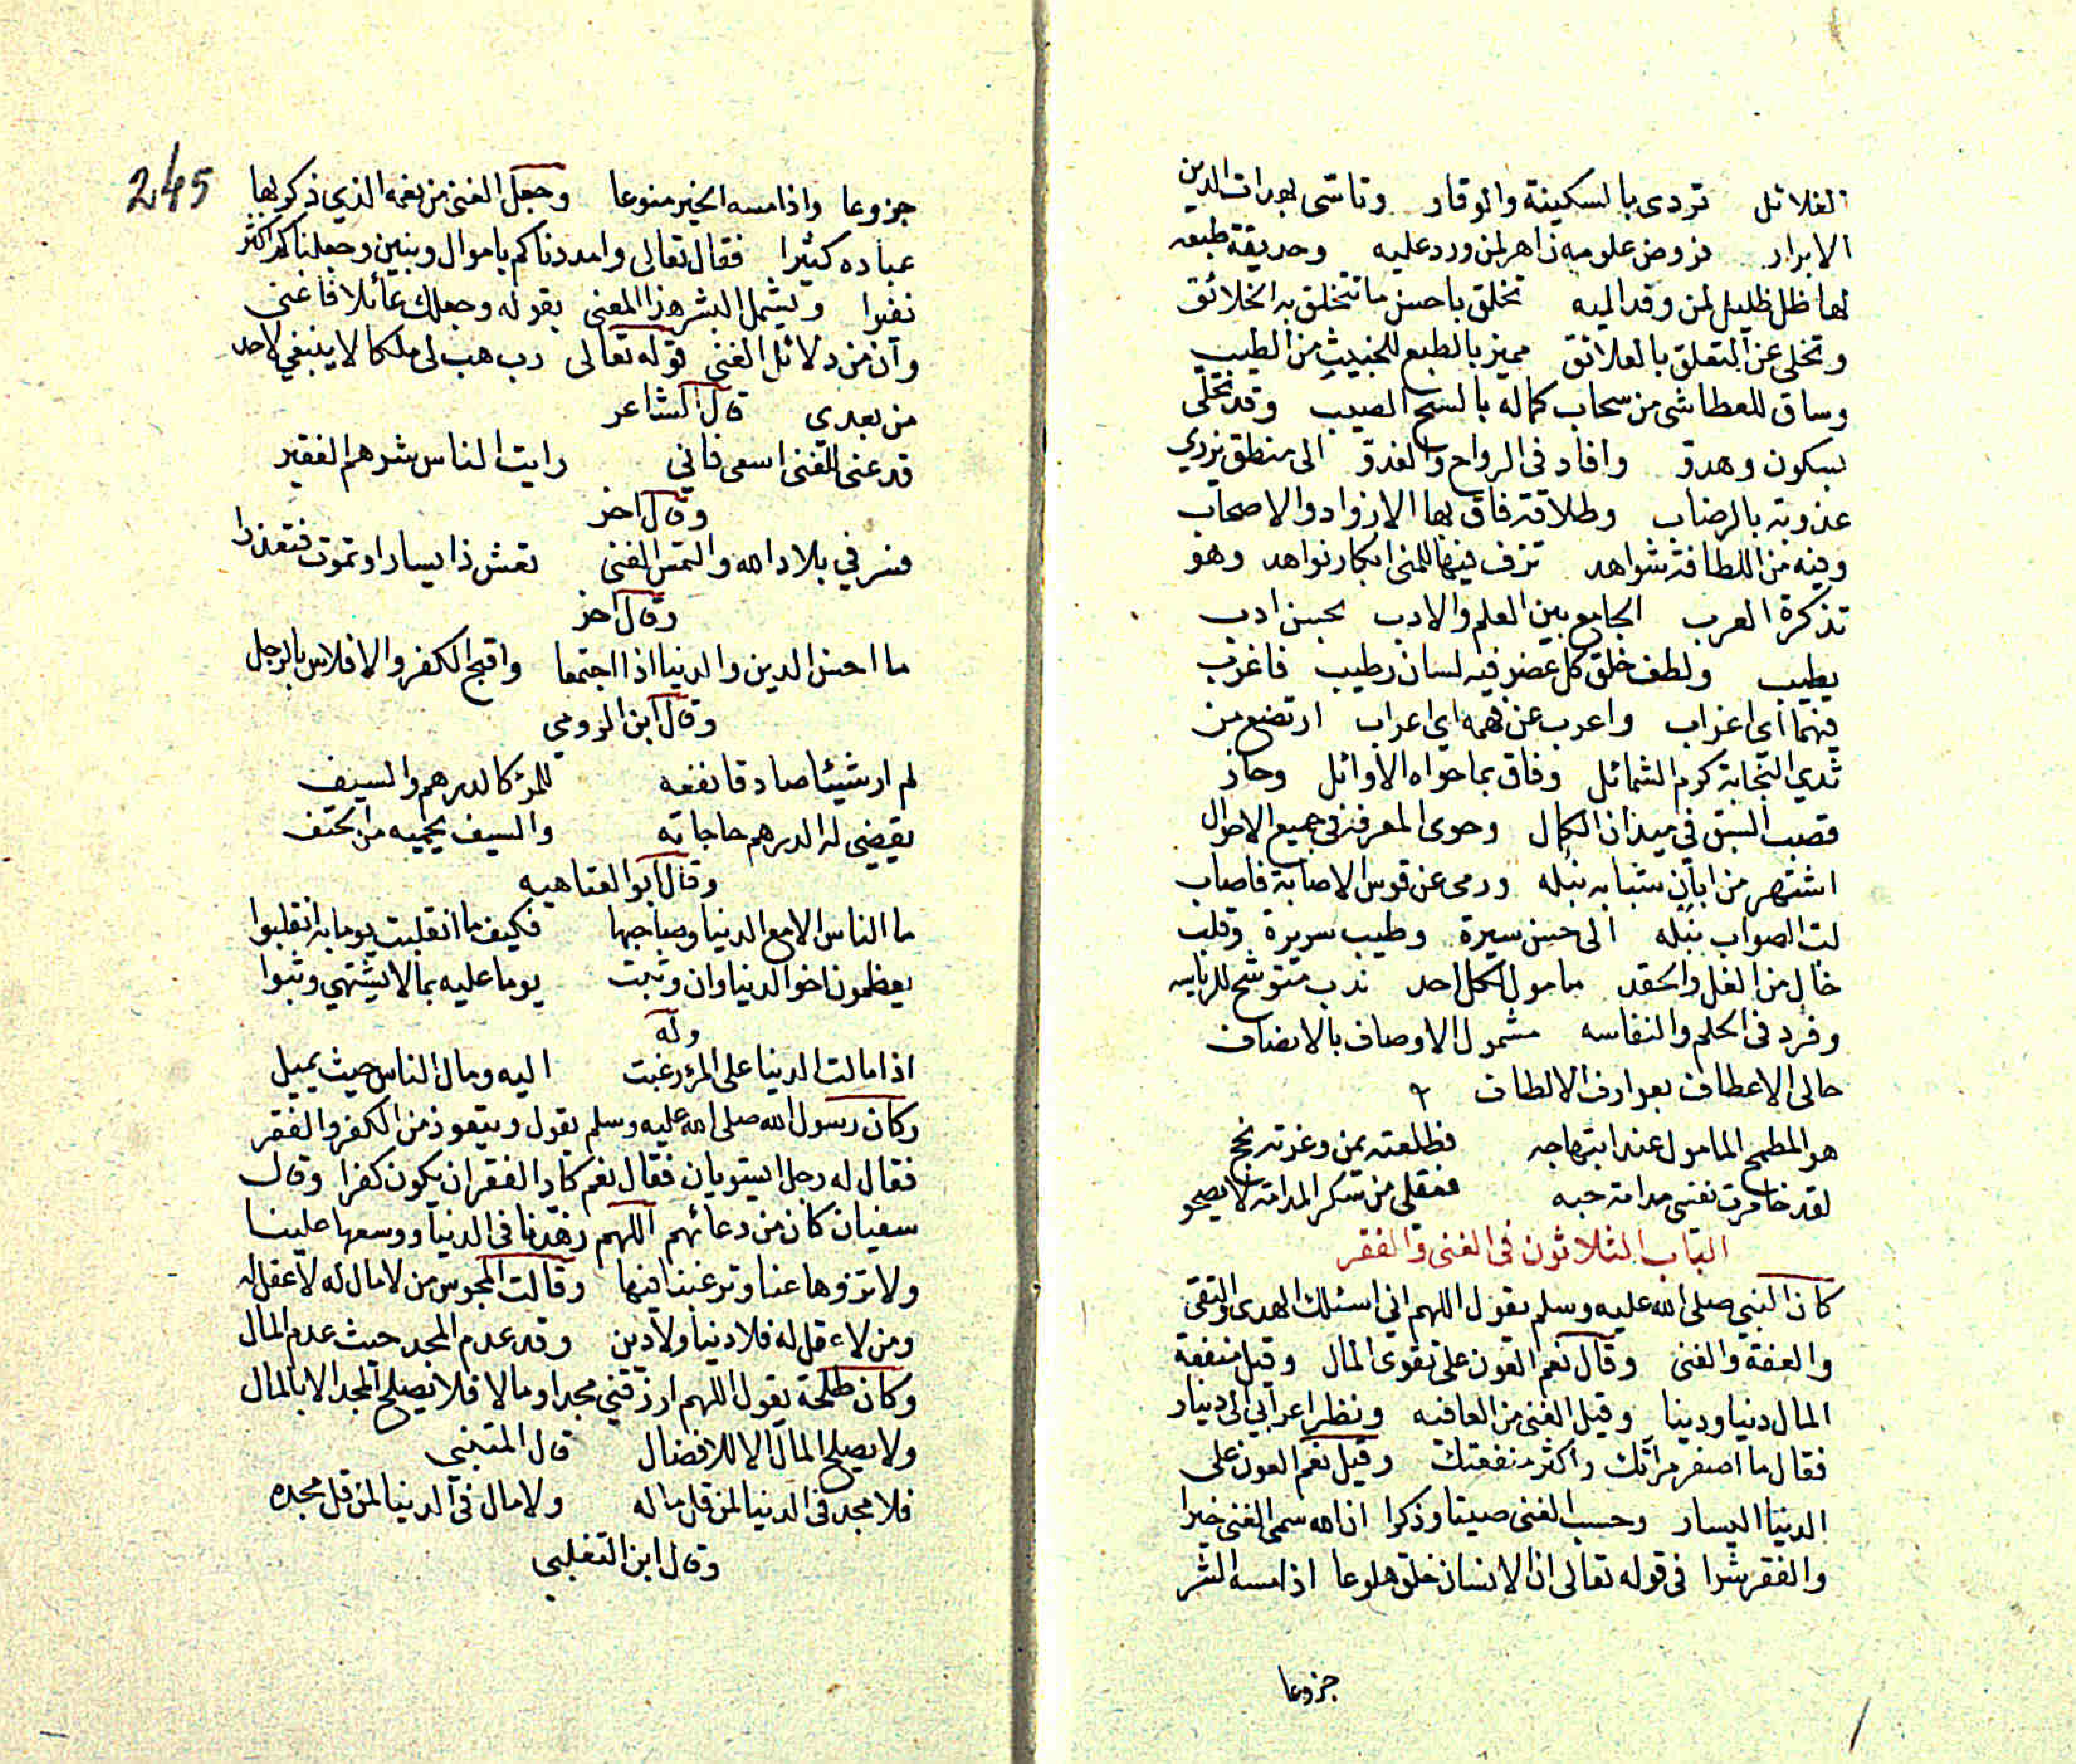 الغلائل تردى بالسكينة والوقار وتاسى بهدات الدين
الابرار فروض علومه زاهر لمن ورد عليه وحديقة طبعه
لها ظل ظليل لمن وفد اليه تخلق باحسن ما تتخلق به الخلائق
وتخلى عن التعلق بالعلائق مميز بالطبع للخبيث من الطيب
وساق للعطاشى من سحاب كماله بالسح الصيب وقد تحلى
بسكون وهدو وافاد فى الرواح والغدو الى منطق يزري
عذوبته بالرضاب وطلاقة فاق بها الازواد والاصحاب
وفيه من اللطافة شواهد تزف فيها للمنى ابكار نواهد وهو
تذكرة العرب الجامع بين العلم والادب بحسن ادب
يطيب ولطف خلق كل عضو فيه لسان رطيب فاغرب
فيهما اى اغراب واعرب عن همه اى اعراب ارتضع من
ثدي النجابة كرم الشمائل وفاق بما حواه الاوائل وحاز
قصب السبق فى ميدان الكمال وحوى المعرفة فى جميع الاحوال
اشتهر من ابان شبابه بنبله ورمى عن قوس الاصابة فاصاب
لت الصواب بنبله الى حسن سيرة وطيب سريرة وقلب
خال من الغل والحقد مامول لكل احد ندب متوشح للرياسه
وفرد فى الحلم والنفاسه مشمول الاوصاف بالانصاف
حالى الاعطاف بعوارف الالطاف
هو المطمح المامول عند ابتهاجه فطلعته يمن وغرته نجح
لقد خامرت نفسى مدامة حبه فعقلى من سكر المدامة لا يصحو
الباب الثلاثون فى الغنى والفقر
كان النبي صلى الله عليه وسلم يقول اللهم انى اسئلك الهدى والتقى
والعفة والغنى وقال نعم العون على تقوى المال وقيل منفعة
المال دنيا ودينا وقيل الغنى من العافيه ونظر اعرابي الى دينار
فقال ما اصغر مرآتك واكثر منفعتك وقيل نعم العون على
الدنيا اليسار وحسب الغنى صيتا وذكرا ان الله سمى الغنى خيرا
والفقر شرا فى قوله تعالى ان الانسان خلق هلوعا اذا مسه الشر
جزوعا
245
جزوعا واذا مسه الخير منوعا وجعل الغنى من نعمه الذي ذكر بها
عباده كثيرا فقال تعالى وامددناكم باموال وبنين وجعلناكم اكثر
نفيرا ويشمل البشر هذا المعنى بقوله وجعلك عائلا فاغنى
وان من دلائل الغنى قوله تعالى رب هب لى ملكا لا ينبغي لاحد
من بعدى قال الشاعر
قد عنى للغنى اسعى فاني رايت الناس شرهم الفقير
وقال اخر
فسر في بلاد الله والتمس الغنى تعش ذا يسار او تموت فتعذرا
وقال اخر
ما احسن الدين والدنيا اذا اجتمعا واقبح الكفر والافلاس بالرجل
وقال ابن الرومي
لم ار شيئا صادقا نفعه للمرء كالدرهم والسيف
يقضي له الدرهم حاجاته والسيف يحميه من الحتف
وقال ابو العتاهيه
ما الناس الا مع الدنيا وصاحبها فكيف ما انقلبت يوما به انقلبوا
يعظمون اخو الدنيا وان وثبت يوما عليه بما لا يشتهي وثبوا
وله
اذا مالت الدنيا على المرء رغبت اليه ومال الناس حيث يميل
وكان رسول الله صلى الله عليه وسلم يقول ويتعوذ من الكفر والفقر
فقال له رجل ايستويان فقال نعم كاد الفقر ان يكون كفرا وقال
سفيان كان من دعائهم اللهم زهدنا فى الدنيا ووسعها علينا
ولا تزوها عنا وترغبنا فيها وقالت المجوس من لا مال له لا عقل له
ومن لا عقل له فلا دنيا ولا دين وقد عدم المجد حيث عدم المال
وكان طلحة يقول اللهم ارزقني مجدا ومالا فلا يصلح المجد الا بالمال
ولا يصلح المال الا للافضال قال المتنبي
فلا مجد فى الدنيا لمن قل ماله ولا مال فى الدنيا لمن قل مجده
وقال ابن التغلبي